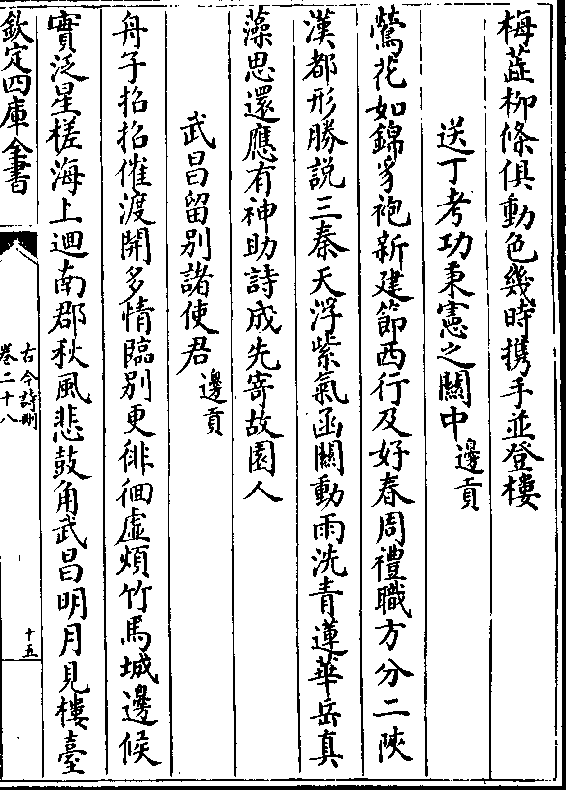 梅蕋柳條俱動色幾時携手並登樓
送丁考功秉憲之關中邊貢
鶯花如錦豸袍新建節西行及好春周禮職方分二陜
漢都形勝說三秦天浮紫氣函關動雨洗青蓮華岳真
藻思還應有神助詩成先寄故園人
武昌留別諸使君邊貢
舟子招招催渡開多情臨別更徘徊虛煩竹馬城邊候
實泛星槎海上迴南郡秋風悲鼓角武昌明月見樓臺
欽定四庫全書
古今詩刪
卷二十八
十五